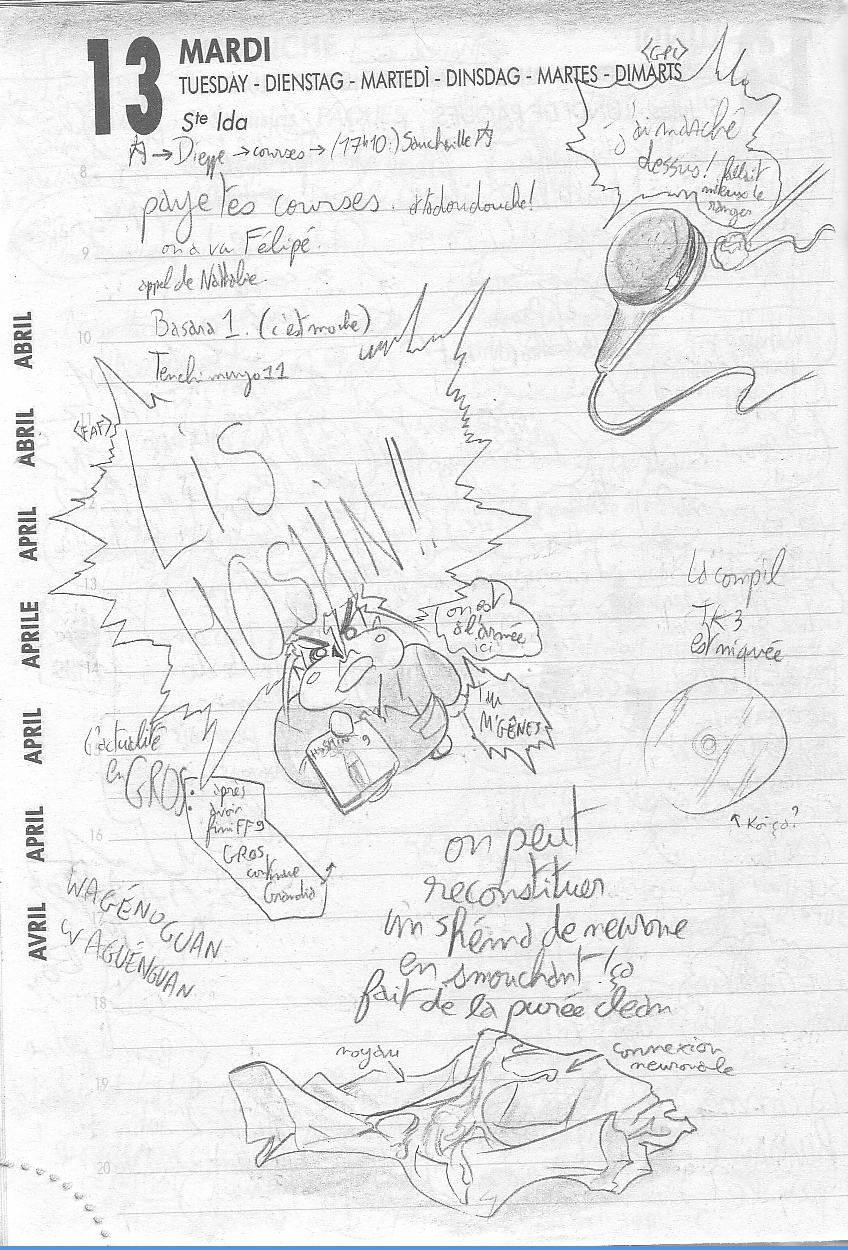 13
MARDI
TUESDAY - DIENSTAG - MARTEDÌ - DINSDAG - MARTES - DIMARTS
Ste Ida
→ Dieppe → courses → (17h10:)
paye tes courses.
on a va Félipé.
appel de Nathalie.
Basara 1. (c'est moche)
Tenchi muyo 11
<GPL>
j'ai marché
dessus! fallait
mieux le
ranger
<FAF>
LIS
HOSHIN!!
on est
à l'armée
ici
TU
M'GÊNES
HOSHIN 9
La compil
TK3
est niquée
l'actualité
en
GROS:
après
avoir
fini FF9
GROS
continue
Grandia
WAGÉNOGUAN
WAGUÉNGUAN
on peut
reconstituer
un shéma de neurone
en smouchant! ça
fait de la purée clean
noyau
connexion
neuronale
8
9
10
11
12
13
14
16
17
18
19
20
ABRIL
ABRIL
APRIL
APRILE
APRIL
APRIL
AVRIL